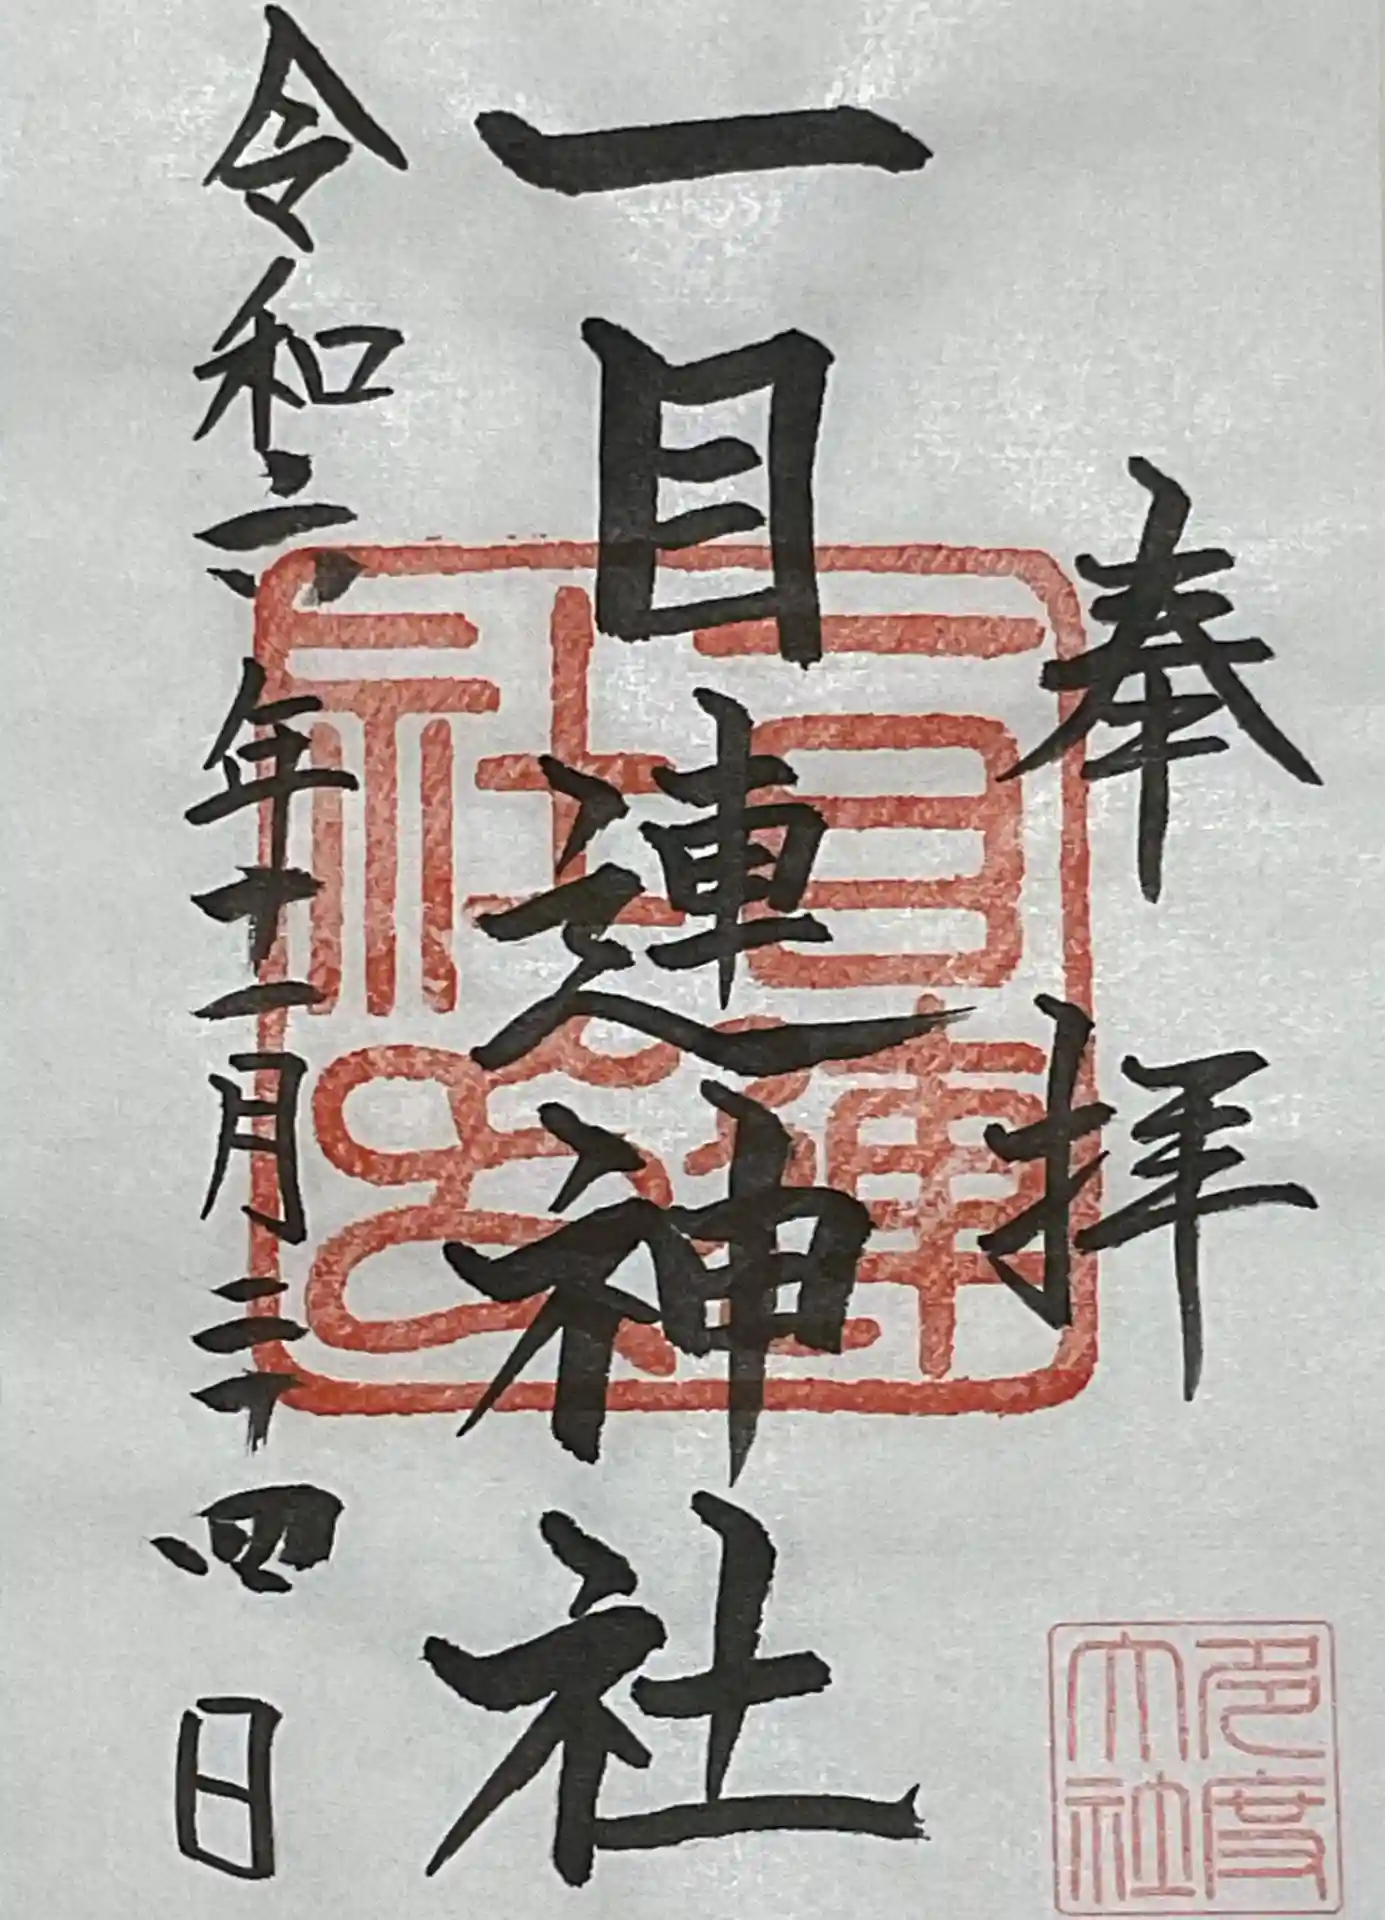 奉拝
一目連神社
令和六年十一月二十四日
一目連
社
多度
大社